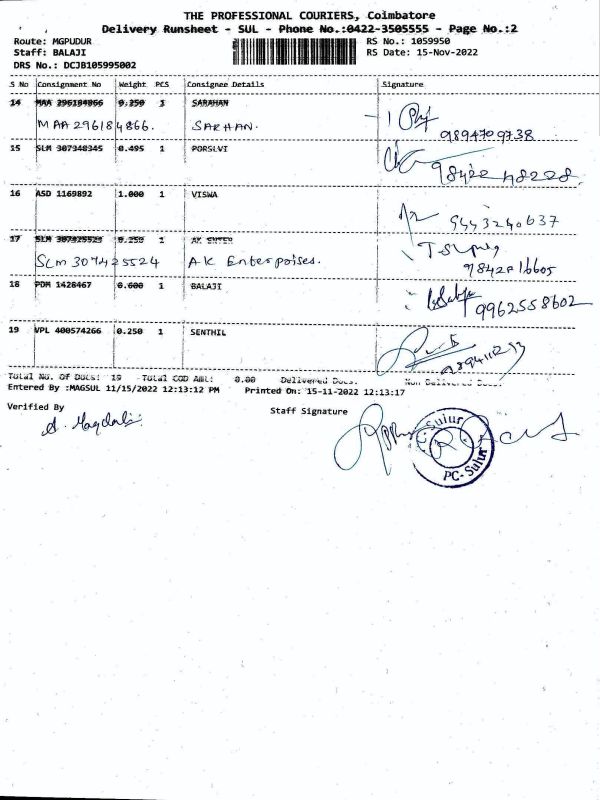 THE PROFESSIONAL COURIERS, Coimbatore
Delivery Runsheet - SUL - Phone No.:0422-3505555 - Page No.:2
Route: MGPUDUR RS No.: 1059950
Staff: BALAJI RS Date: 15-Nov-2022
DRS No.: DCJB105995002
S No Consignment No Weight PCS Consignee Details Signature
14 MAA 296184866 0.250 1 SARAHAN
MAA 296184866. SARHAN.
9894709738
15 SLM 307348345 0.495 1 PORSLVI
98422 48228
16 ASD 1169892 1.000 1 VISWA
9443240637
17 SLM 307425523 0.250 1 AK ENTER
SLM 307425524 A.K Enterpoises.
18 PDM 1428467 0.600 1 BALAJI
9962558602
19 VPL 400574266 0.250 1 SENTHIL
Total No. Of Docs: 19 Total COD Amt: 0.00 Delivered Docs: Non Delivered Docs:
Entered By :MAGSUL 11/15/2022 12:13:12 PM Printed On: 15-11-2022 12:13:17
Verified By Staff Signature
PC-Sulur